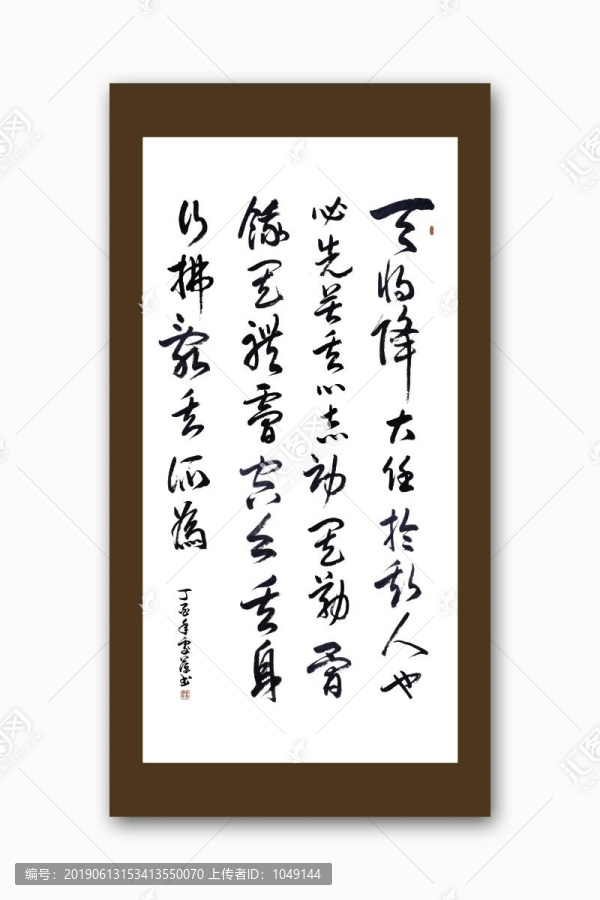 天将降大任於斯人也
必先苦其心志劳其筋骨
餓其體膚空乏其身
行拂亂其所為
丁酉年书
编号：20190613153413550070 上传者ID：1049144
汇图网